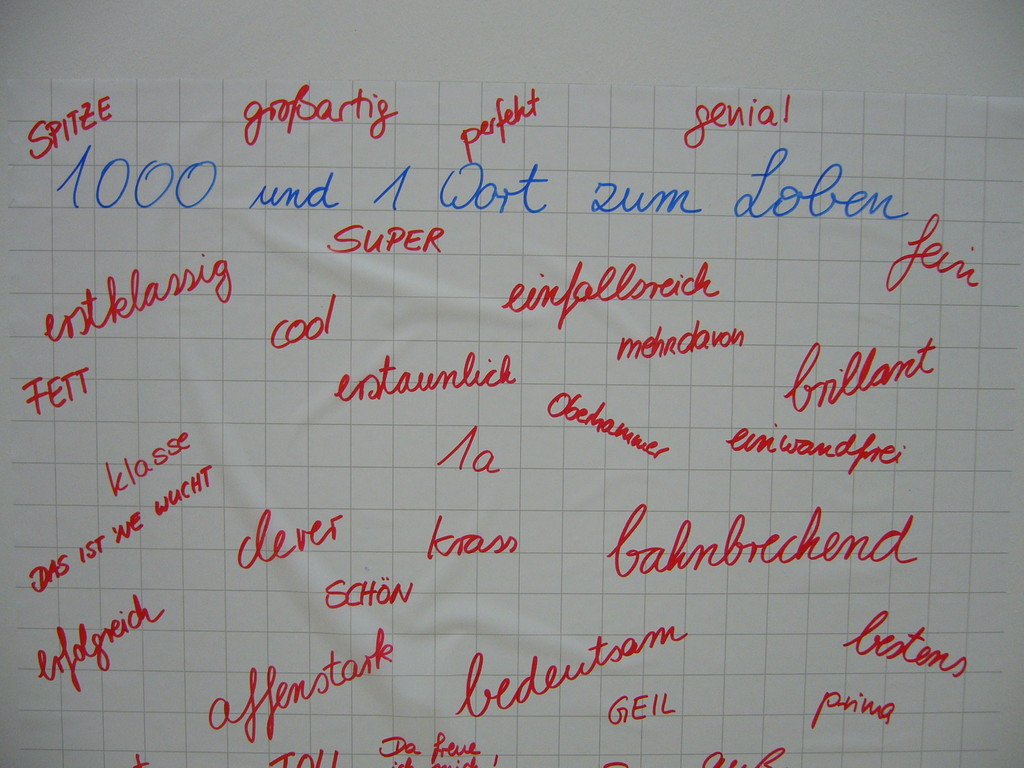 SPITZE
großartig
perfekt
genial
1000 und 1 Wort zum Loben
SUPER
fein
erstklassig
cool
einfallsreich
mehr davon
FETT
erstaunlich
brillant
Oberhammer
einwandfrei
klasse
1a
DAS IST 'NE WUCHT
clever
krass
bahnbrechend
SCHÖN
erfolgreich
affenstark
bedeutsam
bestens
GEIL
prima
TOLL
Da freue
ich mich!